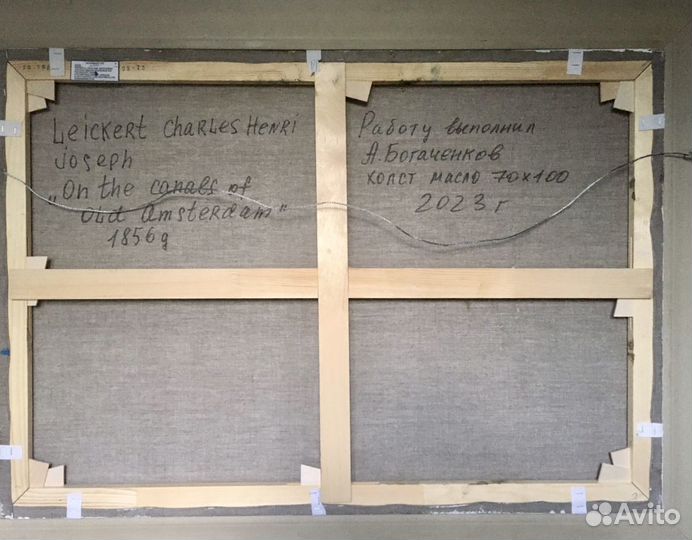 Leickert Charles Henri
Joseph
„On the canals of
Old Amsterdam"
1856g
Работу выполнил
А.Богаченков
холст масло 70x100
2023 г
Avito